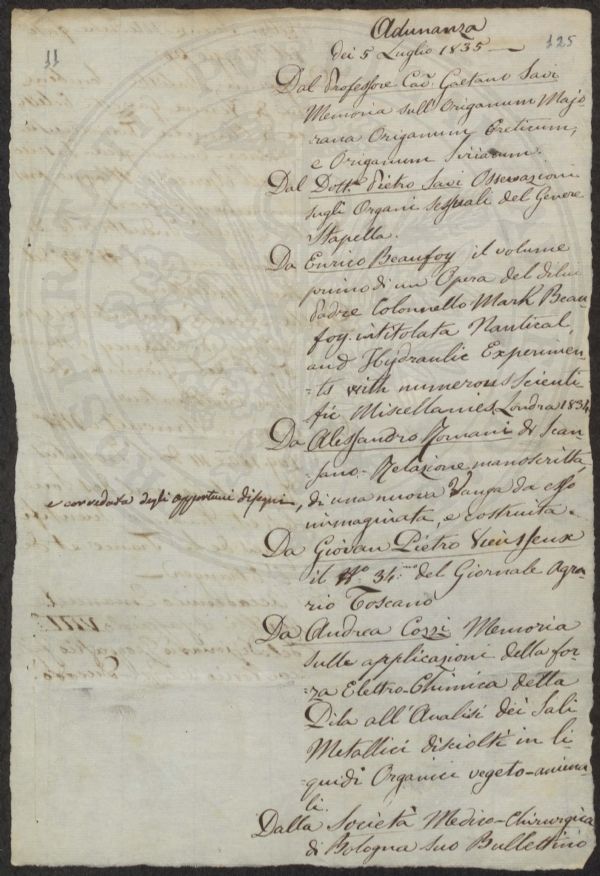 11
125
Adunanza
dei 5 Luglio 1835
Dal Professore Cav. Gaetano Savi
Memoria sull'Origanum Majo-
rana Origanum Creticum,
e Origanum Siriacum.
Dal Dott.e Pietro Savi Osservazioni
sugli Organi sessuali del Genere
Stapella.
Da Enrico Beaufoy il volume
primo di un Opera del di lui
Padre Colonnello Mark Beau-
foy intitolata Nautical
and Hydraulic Experimen-
=ts with numerous Scienti-
fic Miscellanies Londra 1834
Da Alessandro Romani di Scan-
sano - Relazione manoscritta,
e corredata degli opportuni disegni,
di una nuova Vanga da esso
immaginata, e costruita.
Da Giovan Pietro Vieusseux
il No. 34.mo del Giornale Agra-
rio Toscano
Da Andrea Cozzi Memoria
sulle applicazioni della for-
=za Elettro-Chimica della
Pila all'Analisi dei Sali
Metallici disciolti in li-
=quidi Organici vegeto-anima-
li.
Dalla Società Medico-Chirurgica
di Bologna suo Bullettino